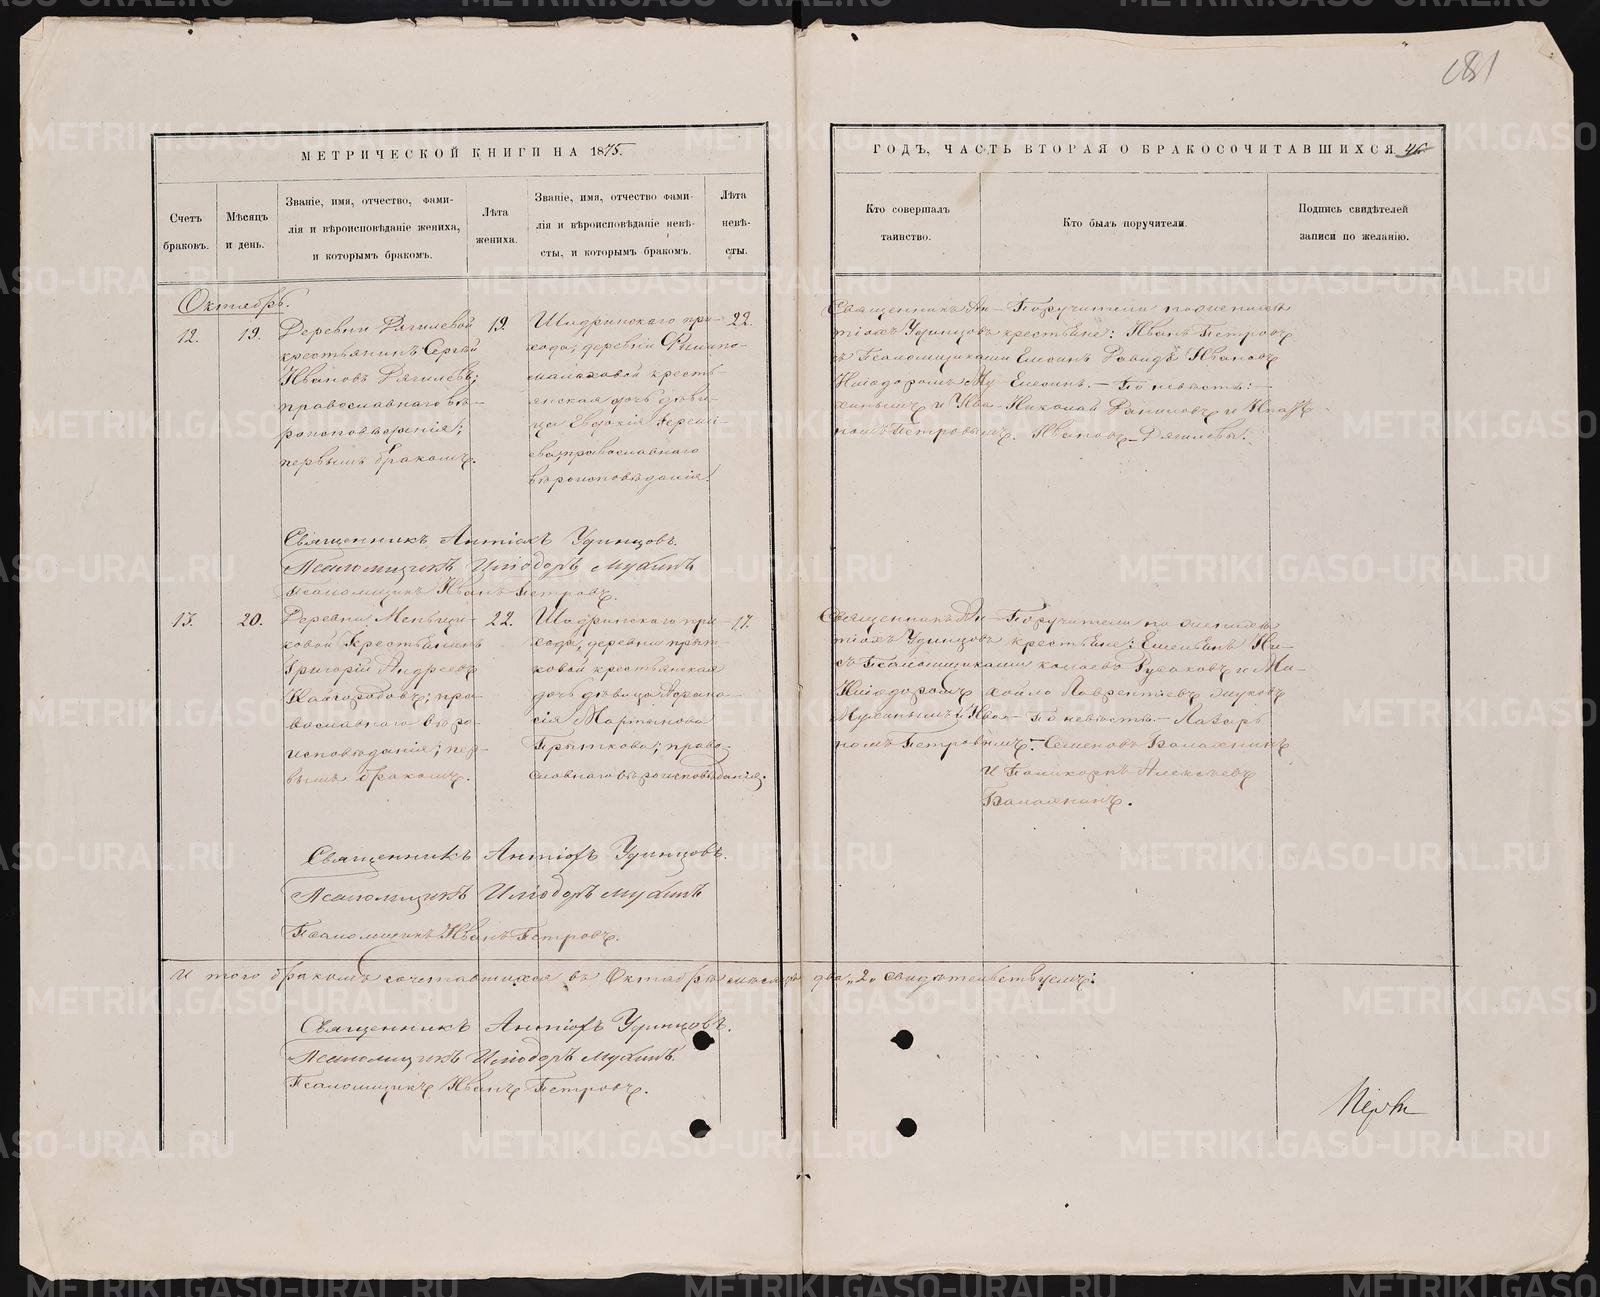 181
МЕТРИЧЕСКОЙ КНИГИ НА 1875.
ГОДЪ, ЧАСТЬ ВТОРАЯ О БРАКОСОЧИТАВШИХСЯ.
Счетъ браковъ.
Мѣсяцъ и день.
Званіе, имя, отчество, фами-
лія и вѣроисповѣданіе жениха,
и которымъ бракомъ.
Лѣта жениха.
Званіе, имя, отчество фами-
лія и вѣроисповѣданіе невѣ-
сты, и которымъ бракомъ.
Лѣта невѣ-
сты.
Кто совершалъ
таинство.
Кто былъ поручители.
Подпись свидѣтелей
записи по желанію.
Октябрь.
12.
19.
Деревни Рягилевой
крестьянинъ Сергѣй
Ивановъ Рягилевъ;
православнаго вѣ-
роисповѣданія;
первымъ бракомъ.
19.
Шадринскаго при-
хода, деревни
кресть-
янская дочь дѣви-
ца Евдокія
православнаго
вѣроисповѣданія.
22.
Священникъ Ан-
тіохъ Удинцовъ
съ Псаломщиками
Иліодоромъ Му-
хинымъ и Ива-
номъ Петровымъ.
Поручители по женихѣ
крестьяне: Иванъ Петровъ
Елесинъ Давидъ Ивановъ
Елесинъ. – По невѣстѣ: –
Николай Даниловъ и
Ивановъ Рягилевы.
Священникъ Антіохъ Удинцовъ.
Псаломщикъ Иліодоръ Мухинъ
Псаломщикъ Иванъ Петровъ.
13.
20.
Деревни Меньщи-
ковой Крестьянинъ
Григорій Андреевъ
Кайгородовъ; пра-
вославнаго вѣро-
исповѣданія; пер-
вымъ бракомъ.
22.
Шадринскаго при-
хода, деревни Прыт-
ковой крестьянская
дочь дѣвица Афана-
сія Мартынова
Прыткова; право-
славнаго вѣроисповѣданія.
17.
Священникъ Ан-
тіохъ Удинцовъ
съ Псаломщиками
Иліодоромъ
Мухинымъ и Ива-
номъ Петровымъ.
Поручители по женихѣ
крестьяне: Емельянъ Ни-
колаевъ Русаковъ и Ми-
хайло Лаврентіевъ Жуковъ
По невѣстѣ – Лазарь
Семеновъ Балакинъ
и Поликарпъ Алексѣевъ
Балакинъ.
Священникъ Антіохъ Удинцовъ.
Псаломщикъ Иліодоръ Мухинъ
Псаломщикъ Иванъ Петровъ.
И того бракомъ сочетавшихся въ Октябрѣ мѣсяцѣ два „2„ свидѣтельствуемъ:
Священникъ Антіохъ Удинцовъ.
Псаломщикъ Иліодоръ Мухинъ.
Псаломщикъ Иванъ Петровъ.
METRIKI.GASO-URAL.RU